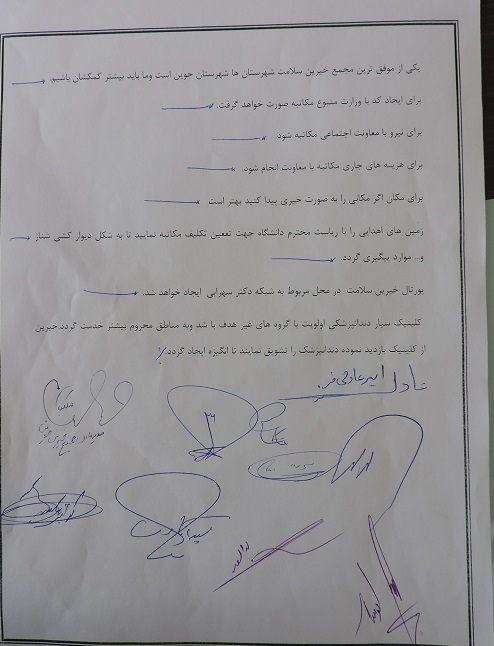 یکی از موفق ترین مجمع خیرین سلامت شهرستان ها شهرستان جوین است وما باید بیشتر کمکشان باشیم.
برای ایجاد کد با وزارت متبوع مکاتبه صورت خواهد گرفت.
برای نیرو با معاونت اجتماعی مکاتبه شود.
برای هزینه های جاری مکاتبه با معاونت انجام شود.
برای مکان اگر مکانی را به صورت خیری پیدا کنید بهتر است
زمین های اهدایی را با ریاست محترم دانشگاه جهت تعیین تکلیف مکاتبه نمایید تا به شکل دیوار کشی شناژ
و.. موارد پیگیری گردد.
پورتال خیرین سلامت در محل مربوط به شبکه دکتر سهرابی ایجاد خواهد شد.
کلینیک سیار دندانپزشکی اولویت با گروه های غیر هدف با شد وبه مناطق محروم بیشتر خدمت گردد.خیرین
از کلینیک بازدید نموده دندانپزشک را تشویق نمایند تا انگیزه ایجاد گردد.